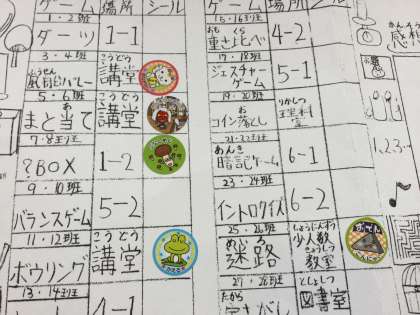 ゲーム 場所 シール
1・2班
ダーツ 1-1
3・4班
ふうせん こうどう
風船バレー 講堂
5・6班
あ こうどう
まと当て 講堂
7・8班
?BOX 1-2
9・10班
バランスゲーム 5-2
11・12班
こうどう
ボウリング 講堂
13・14班
4-1
ゲーム 場所 シール
15・16班
おも くら
重さ比べ 4-2
17・18班
ジェスチャーゲーム 5-1
19・20班
お りかしつ
コイン落とし 理科室
21・22班
あんき
暗記ゲーム 6-1
23・24班
イントロクイズ 6-2
25・26班
めいろ しょうにんずう きょうしつ
迷路 少人数教室
27・28班
たから としょしつ
図書室
かんそう
感
1,2,3